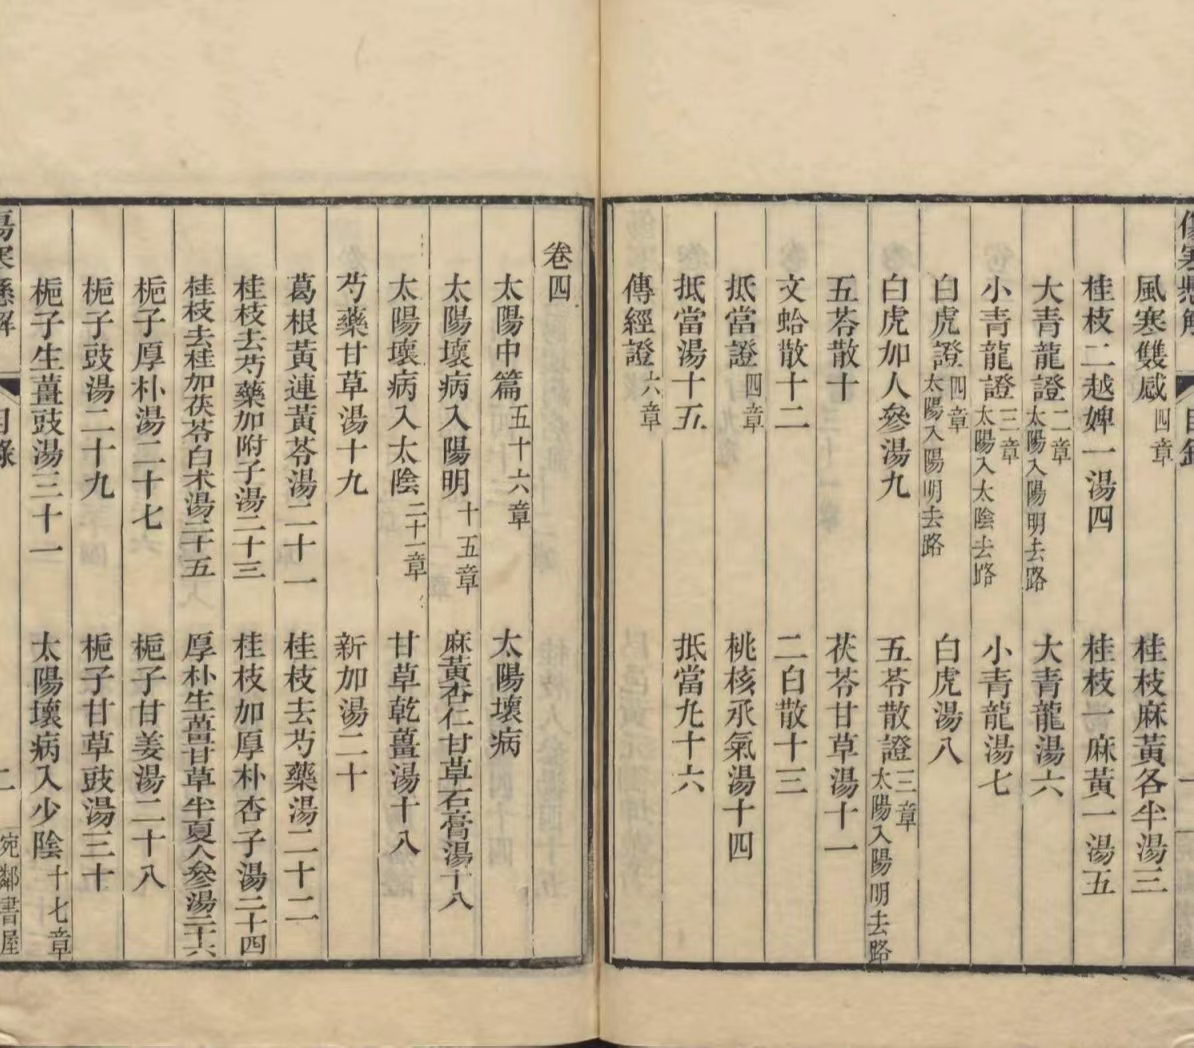 傷寒懸解 目錄 一
風寒雙感四章 桂枝麻黃各半湯三
桂枝二越婢一湯四 桂枝一麻黃一湯五
大青龍證二章太陽入陽明去路 大青龍湯六
小青龍證三章太陽入太陰去路 小青龍湯七
白虎證四章太陽入陽明去路 白虎湯八
白虎加人參湯九 五苓散證三章太陽入陽明去路
五苓散十 茯苓甘草湯十一
文蛤散十二 二白散十三
抵當證四章 桃核承氣湯十四
抵當湯十五 抵當丸十六
傳經證六章
卷四
太陽中篇五十六章 太陽壞病
太陽壞病入陽明十五章 麻黃杏仁甘草石膏湯十八
太陽壞病入太陰二十一章 甘草乾薑湯十八
芍藥甘草湯十九 新加湯二十
葛根黃連黃芩湯二十一 桂枝去芍藥湯二十二
桂枝去芍藥加附子湯二十三 桂枝加厚朴杏子湯二十四
桂枝去桂加茯苓白术湯二十五 厚朴生薑甘草半夏人參湯二十六
梔子厚朴湯二十七 梔子甘姜湯二十八
梔子豉湯二十九 梔子甘草豉湯三十
梔子生薑豉湯三十一 太陽壞病入少陰十七章
傷寒懸解 目錄 二 宛鄰書屋